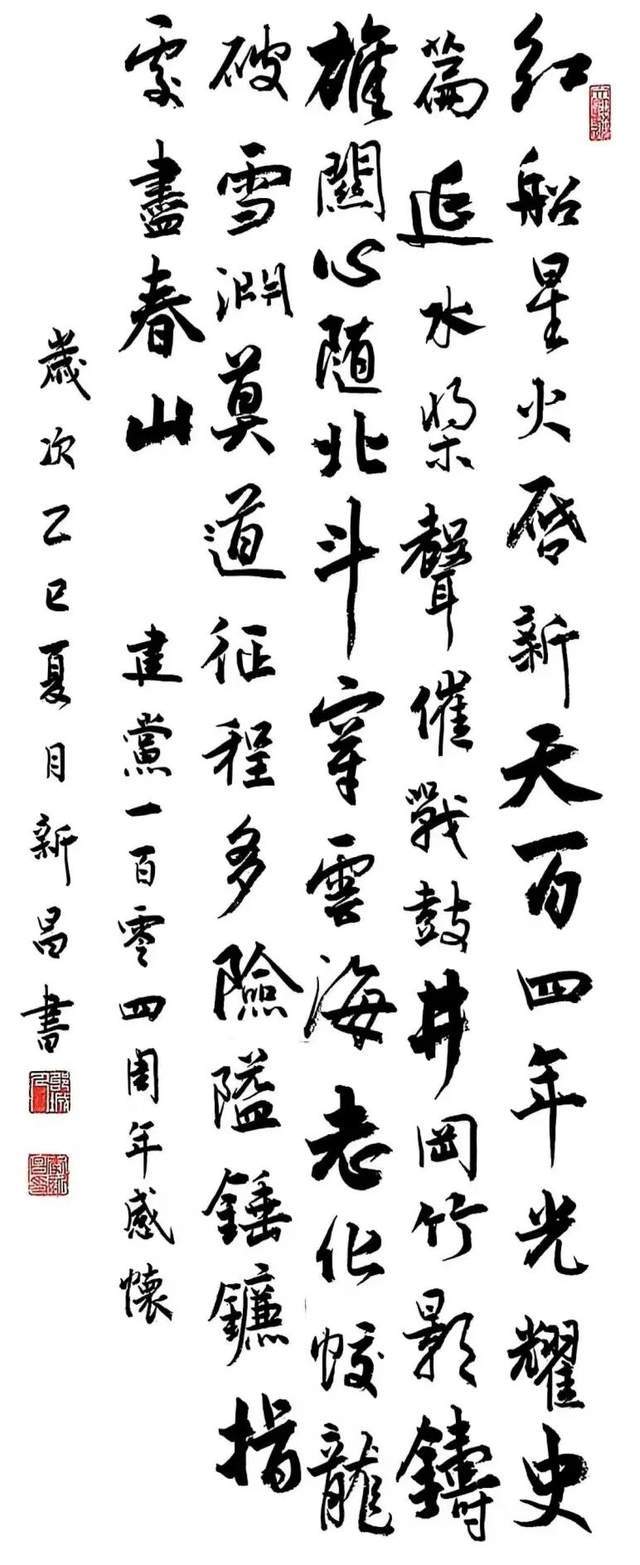 红船星火启新天百四年光耀史
篇延水桨聲催戰鼓井岡竹影鑄
雄關心随北斗穿雲海志化蛟龍
破雪澗莫道征程多險隘錘鐮指
處盡春山 建黨一百零四周年感懷
歲次乙巳夏月新昌書